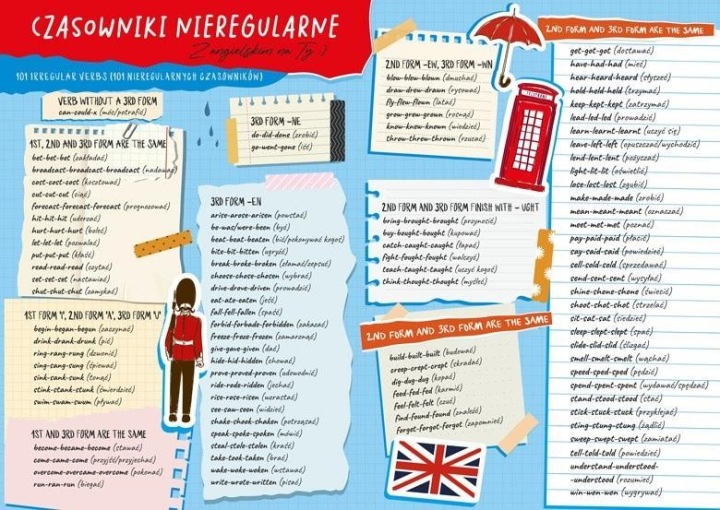 CZASOWNIKI NIEREGULARNE
Z angielskim na Ty :)
101 IRREGULAR VERBS (101 NIEREGULARNYCH CZASOWNIKÓW)
VERB WITHOUT A 3RD FORM
can-could-x (móc/potrafić)
1ST, 2ND AND 3RD FORM ARE THE SAME
bet-bet-bet (zakładać)
broadcast-broadcast-broadcast (nadawać)
cost-cost-cost (kosztować)
cut-cut-cut (ciąć)
forecast-forecast-forecast (prognozować)
hit-hit-hit (uderzać)
hurt-hurt-hurt (boleć)
let-let-let (pozwalać)
put-put-put (kłaść)
read-read-read (czytać)
set-set-set (nastawiać)
shut-shut-shut (zamykać)
1ST FORM 'I', 2ND FORM 'A', 3RD FORM 'U'
begin-began-begun (zaczynać)
drink-drank-drunk (pić)
ring-rang-rung (dzwonić)
sing-sang-sung (śpiewać)
sink-sank-sunk (tonąć)
stink-stank-stunk (śmierdzieć)
swim-swam-swum (pływać)
1ST AND 3RD FORM ARE THE SAME
become-became-become (stawać)
come-came-come (przyjść/przyjechać)
overcome-overcame-overcome (pokonać)
run-ran-run (biegać)
3RD FORM -NE
do-did-done (zrobić)
go-went-gone (iść)
3RD FORM -EN
arise-arose-arisen (powstać)
be-was/were-been (być)
beat-beat-beaten (bić/pokonywać kogoś)
bite-bit-bitten (ugryźć)
break-broke-broken (złamać/zepsuć)
choose-chose-chosen (wybrać)
drive-drove-driven (prowadzić)
eat-ate-eaten (jeść)
fall-fell-fallen (spaść)
forbid-forbade-forbidden (zakazać)
freeze-froze-frozen (zamarzać)
give-gave-given (dać)
hide-hid-hidden (chować)
prove-proved-proven (udowodnić)
ride-rode-ridden (jechać)
rise-rose-risen (wzrastać)
see-saw-seen (widzieć)
shake-shook-shaken (potrząsać)
speak-spoke-spoken (mówić)
steal-stole-stolen (kraść)
take-took-taken (brać)
wake-woke-woken (wstawać)
write-wrote-written (pisać)
2ND FORM -EW, 3RD FORM -WN
blow-blew-blown (dmuchać)
draw-drew-drawn (rysować)
fly-flew-flown (latać)
grow-grew-grown (rosnąć)
know-knew-known (wiedzieć)
throw-threw-thrown (rzucać)
2ND FORM AND 3RD FORM FINISH WITH - UGHT
bring-brought-brought (przynosić)
buy-bought-bought (kupować)
catch-caught-caught (łapać)
fight-fought-fought (walczyć)
teach-taught-taught (uczyć kogoś)
think-thought-thought (myśleć)
2ND FORM AND 3RD FORM ARE THE SAME
build-built-built (budować)
creep-crept-crept (skradać)
dig-dug-dug (kopać)
feed-fed-fed (karmić)
feel-felt-felt (czuć)
find-found-found (znaleźć)
forget-forgot-forgot (zapomnieć)
2ND FORM AND 3RD FORM ARE THE SAME
get-got-got (dostawać)
have-had-had (mieć)
hear-heard-heard (słyszeć)
hold-held-held (trzymać)
keep-kept-kept (zatrzymać)
lead-led-led (prowadzić)
learn-learnt-learnt (uczyć się)
leave-left-left (opuszczać/wychodzić)
lend-lent-lent (pożyczać)
light-lit-lit (oświetlić)
lose-lost-lost (zgubić)
make-made-made (zrobić)
mean-meant-meant (oznaczać)
meet-met-met (poznać)
pay-paid-paid (płacić)
say-said-said (powiedzieć)
sell-sold-sold (sprzedawać)
send-sent-sent (wysyłać)
shine-shone-shone (świecić)
shoot-shot-shot (strzelać)
sit-sat-sat (siedzieć)
sleep-slept-slept (spać)
slide-slid-slid (ślizgać)
smell-smelt-smelt (wąchać)
speed-sped-sped (pędzić)
spend-spent-spent (wydawać/spędzać)
stand-stood-stood (stać)
stick-stuck-stuck (przyklejać)
sting-stung-stung (żądlić)
sweep-swept-swept (zamiatać)
tell-told-told (powiedzieć)
understand-understood-
-understood (rozumieć)
win-won-won (wygrywać)